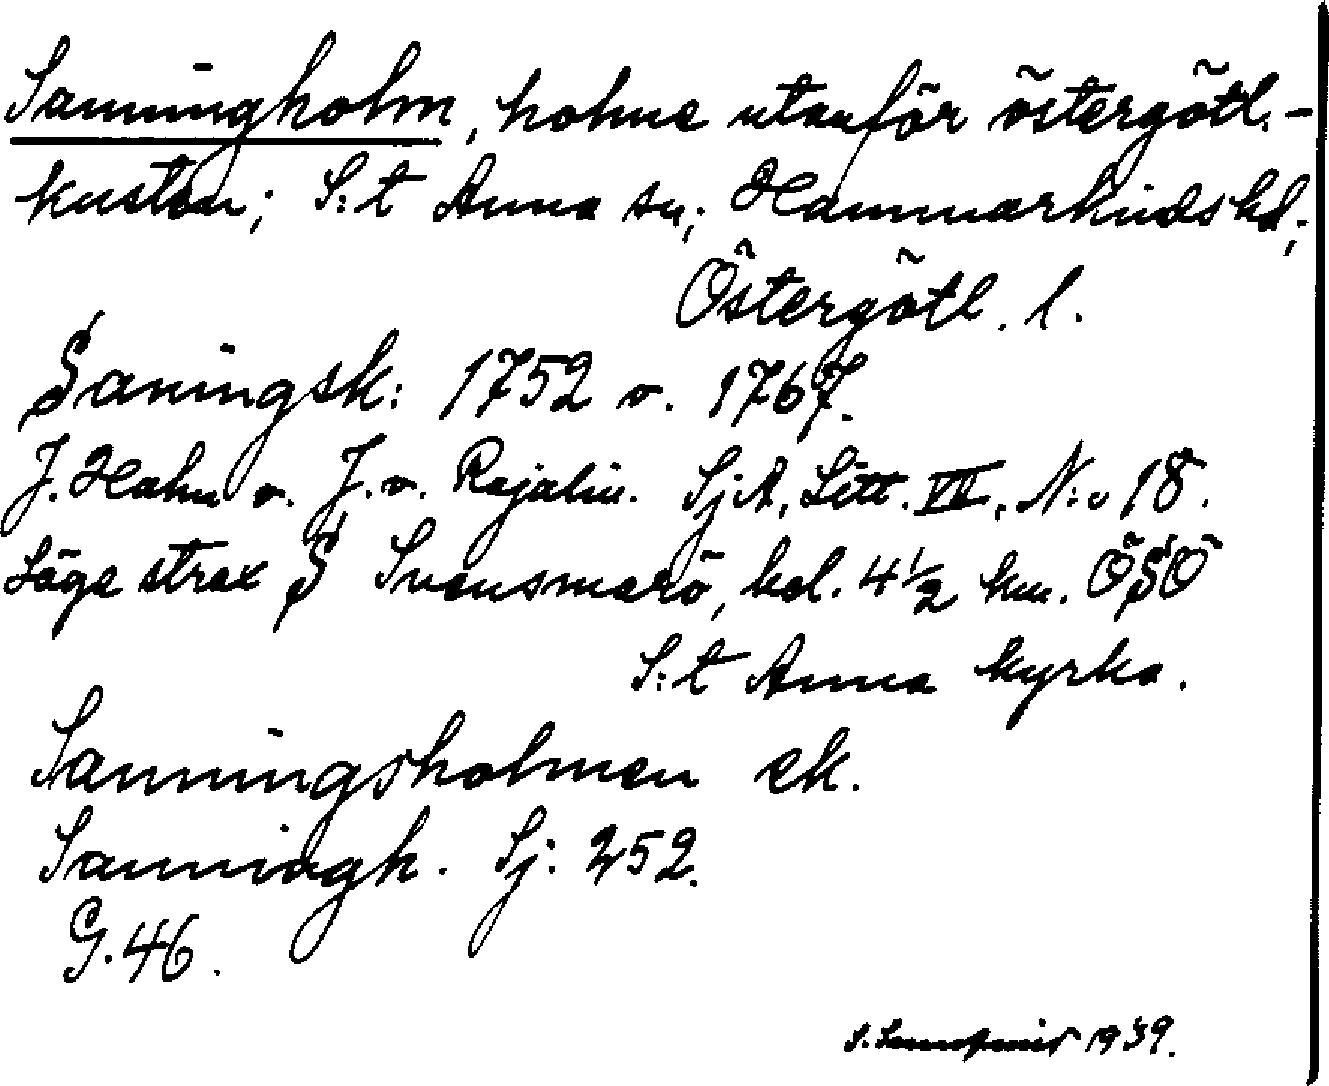 Sanningholm, holme utanför östergötl.-
kusten; S:t Anna sn; Hammarkinds hd;
Östergötl. l.
Saningsk: 1752 o. 1767.
J. Hahn o. J. v. Rajalin. SjA, Litt. VII, N:o 18.
Läge strax S Svensmarö, bel. 4 1/2 km. ÖSÖ
S:t Anna kyrka.
Sanningsholmen ek.
Sanningh. Sj: 252.
G. 46.
1939.